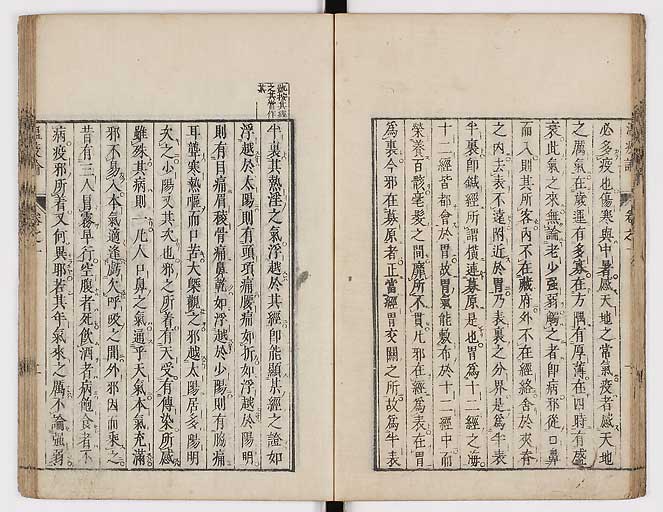 必多疫也傷寒與中暑感天地之常氣疫者感天地
之厲氣在歲運有多寡在方隅有厚薄在四時有盛
衰此氣之來無論老少强弱觸之者即病邪從口鼻
而入則其所客内不在臟府外不在經絡舍於夾脊
之内去表不遠附近於胃乃表裏之分界是爲半表
半裏即鍼經所謂橫連募原是也胃爲十二經之海
十二經皆都會於胃故胃氣能敷布於十二經中而
榮養百骸毫髮之間靡所不貫凡邪在經爲表在胃
爲裏今邪在募原者正當經胃交關之所故爲半表
按其經
之其當作
某
半裏其熱淫之氣浮越於其經即能顯某經之證如
浮越於太陽則有頭項痛腰痛如折如浮越於陽明
則有目痛眉稜骨痛鼻乾如浮越於少陽則有脇痛
耳聾寒熱嘔而口苦大槩觀之邪越太陽居多陽明
次之少陽又其次也邪之所着有天受有傳染所感
雖殊其病則一凡人口鼻之氣通乎天氣本氣充滿
邪不易入本氣適逢虧欠呼吸之間外邪因而乘之
昔有三人冒霧早行空腹者死飲酒者病飽食者不
病疫邪所着又何異耶若其年氣來之厲不論强弱